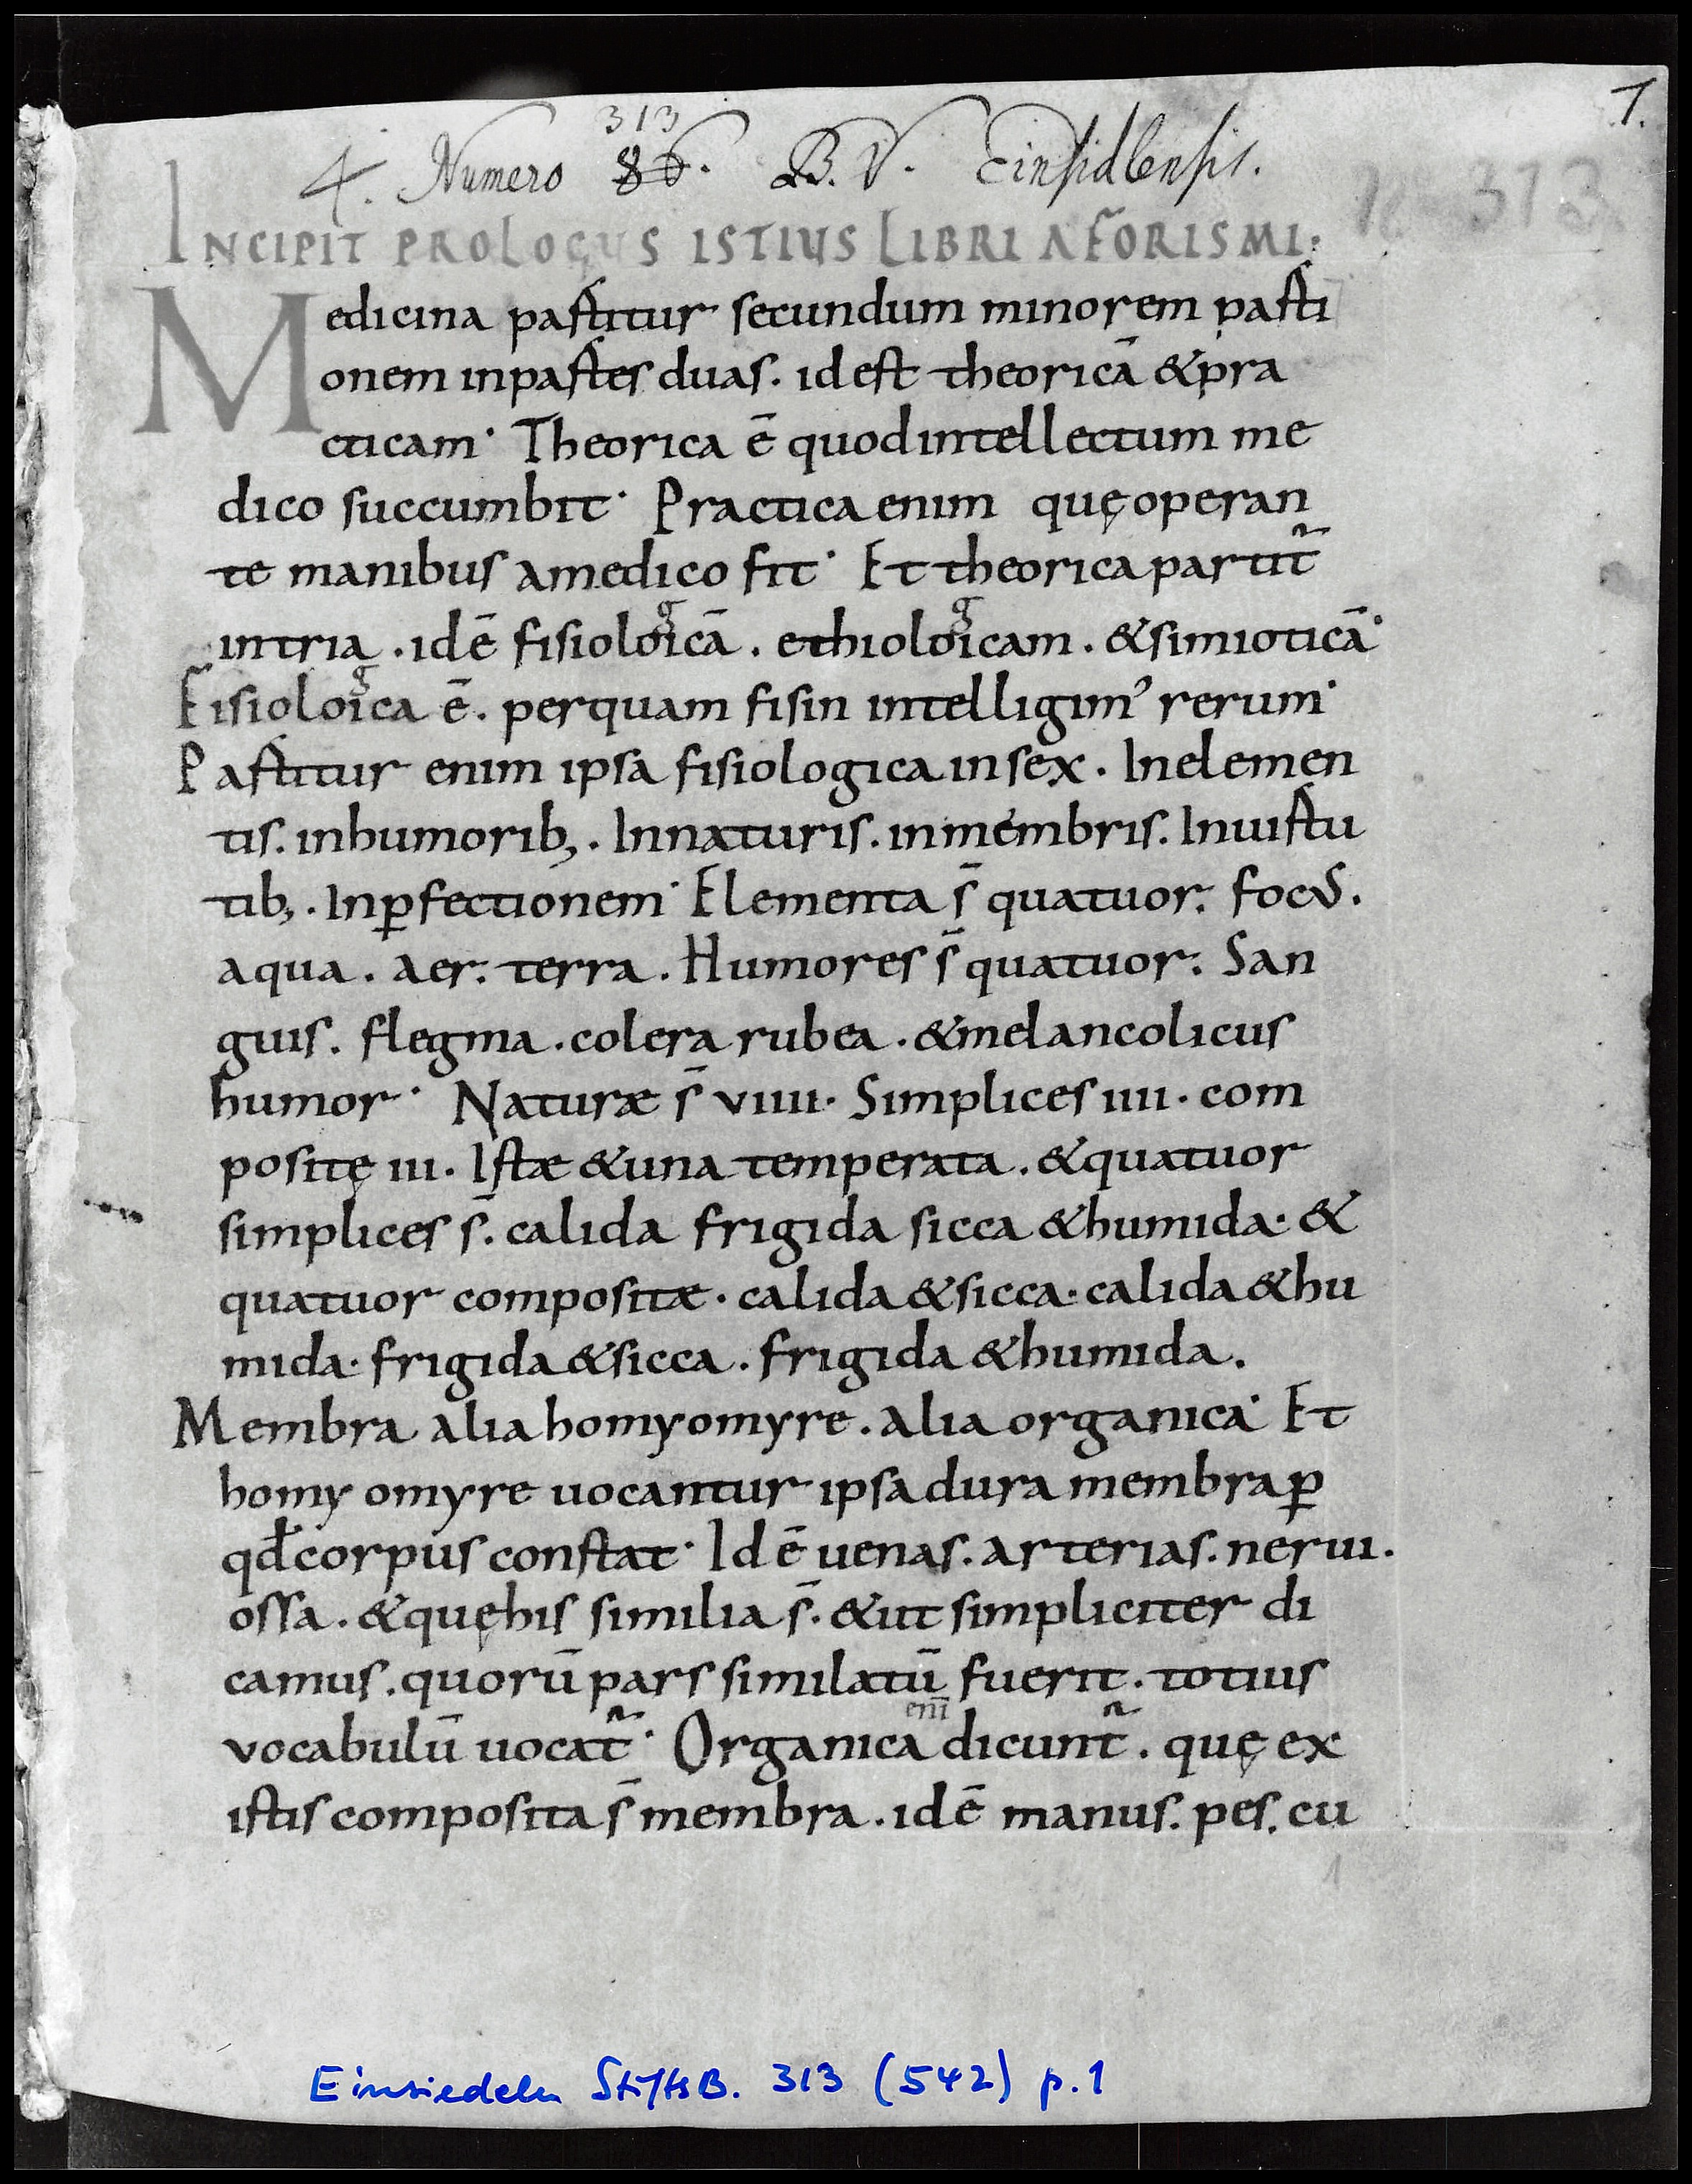 1.
313
4. Numero 86. B. V. Einsidlensis.
313
INCIPIT PROLOGUS ISTIUS LIBRI AFORISMI:
Medicina partitur secundum minorem parti
onem inpartes duas. idest theoricā &pra
cticam· Theorica ē quodintellectum me
dico succumbit· Practica enim quęoperan
te manibus amedico fit· Et theorica partit᷑
intria. idē fisiologicā. ethiologicam. &simioticā·
Fisiologica ē. perquam fisin intelligimꝰ rerum·
Partitur enim ipsa fisiologica insex. Inelemen
tis. inhumorib;. Innaturis. inmembris. Inuirtu
tib;. Inꝑfectionem· Elementa s̄ quatuor. focus.
aqua. aer. terra. Humores s̄ quatuor. San
guis. flegma. colera rubea. &melancolicus
humor· Naturæ s̄ viiii. Simplices iiii. com
positę iii. Istæ &una temperata. &quatuor
simplices s̄. calida frigida sicca &humida. &
quatuor compositæ. calida &sicca. calida &hu
mida. frigida &sicca. frigida &humida.
Membra alia homyomyre. alia organica· Et
homy omyre uocantur ipsa dura membra ꝑ
qđ corpus constat· Idē uenas. arterias. nerui.
ossa. &quęhis similia s̄. &ut simpliciter di
camus. quorū pars similatū fuerit. totius
vocabulū uocat᷑· Organica eni̅ dicunt᷑. quę ex
istis composita s̄ membra. idē manus. pes. cu
1
Einsiedeln StiftsB. 313 (542) p.1